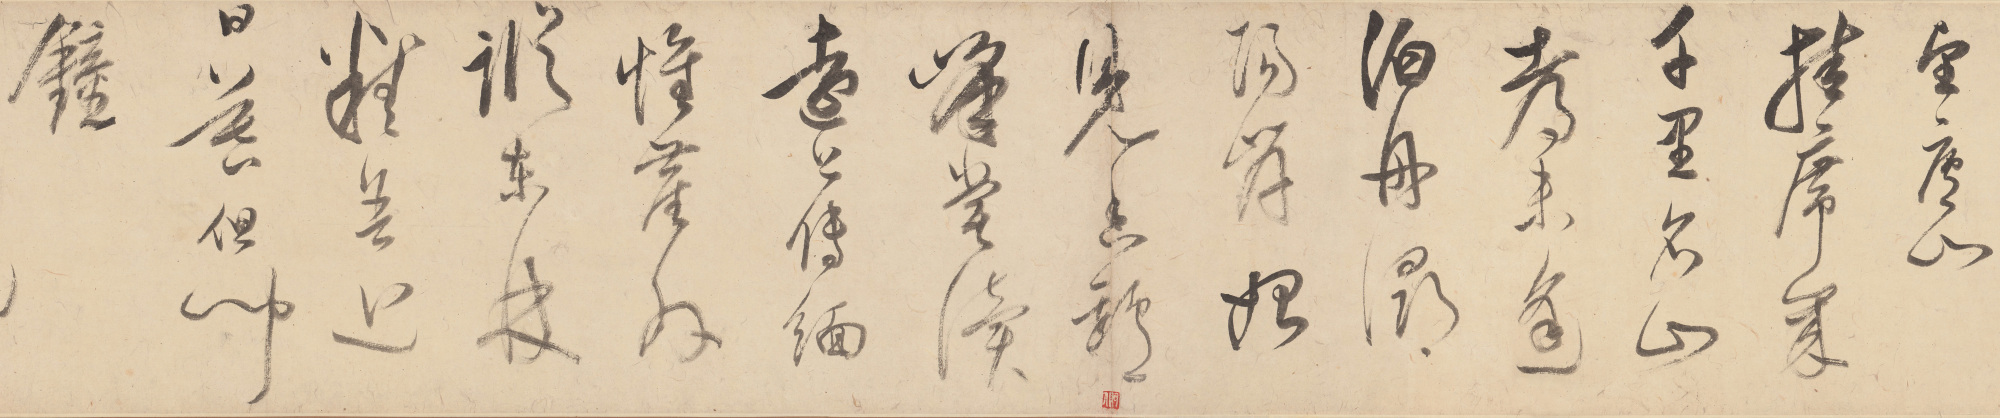 望廬山
挂席幾
千里名山
都未逢
泊舟潯
陽郭始
見香爐
峰嘗讀
遠公傳緬
懷塵外
蹤東林
精舍近
日暮但聞
鐘